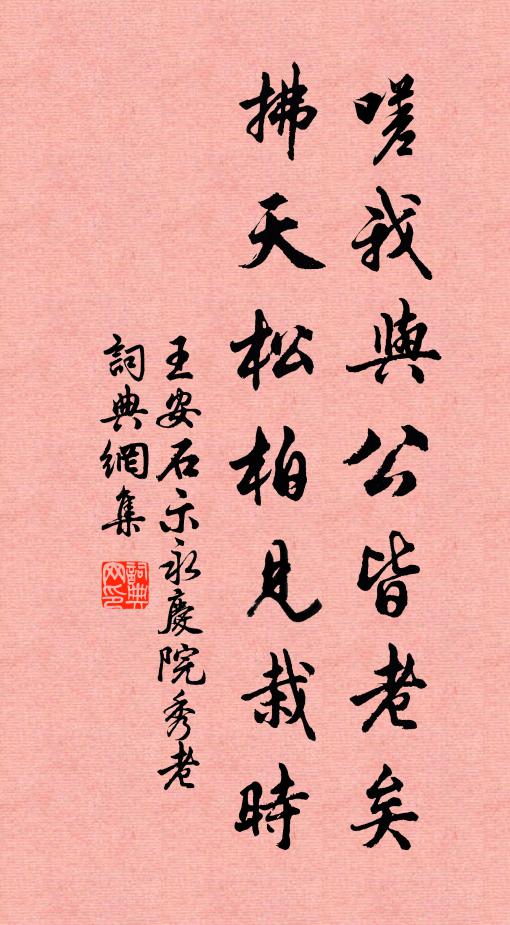 嗟我與公皆老矣
拂天松柏見栽時
王安石示永慶院秀老
詞典網集
詞典网印